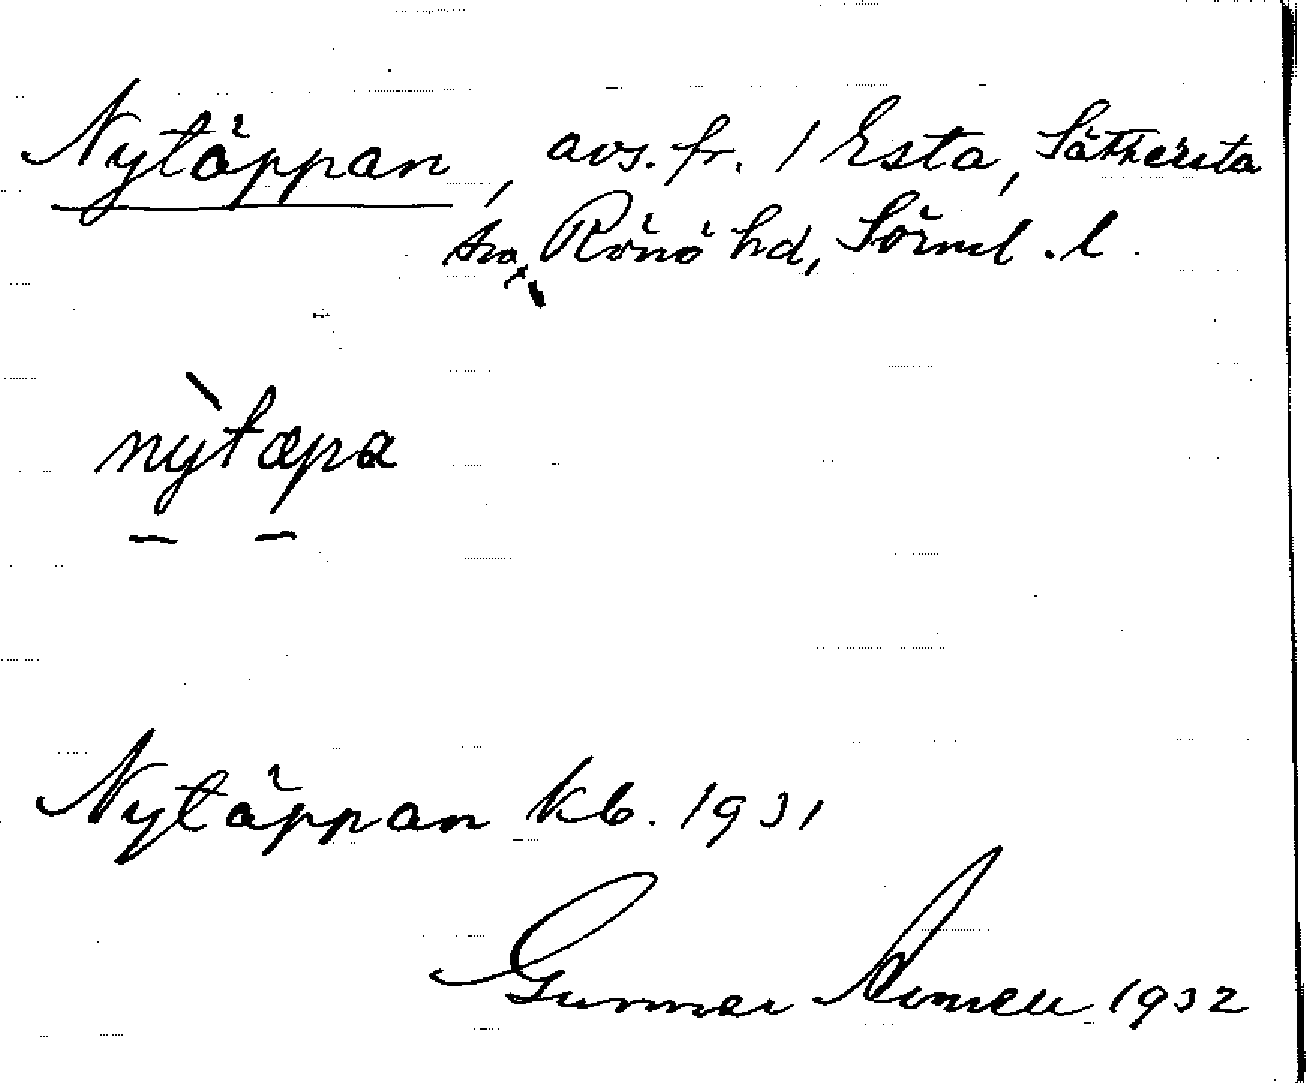 Nytäppan, avs. fr. 1 Esta, Sättersta
sn, Rönö hd, Sörml. l.
nỳtæpa
Nytäppan kb. 1931
Gunnar 1932